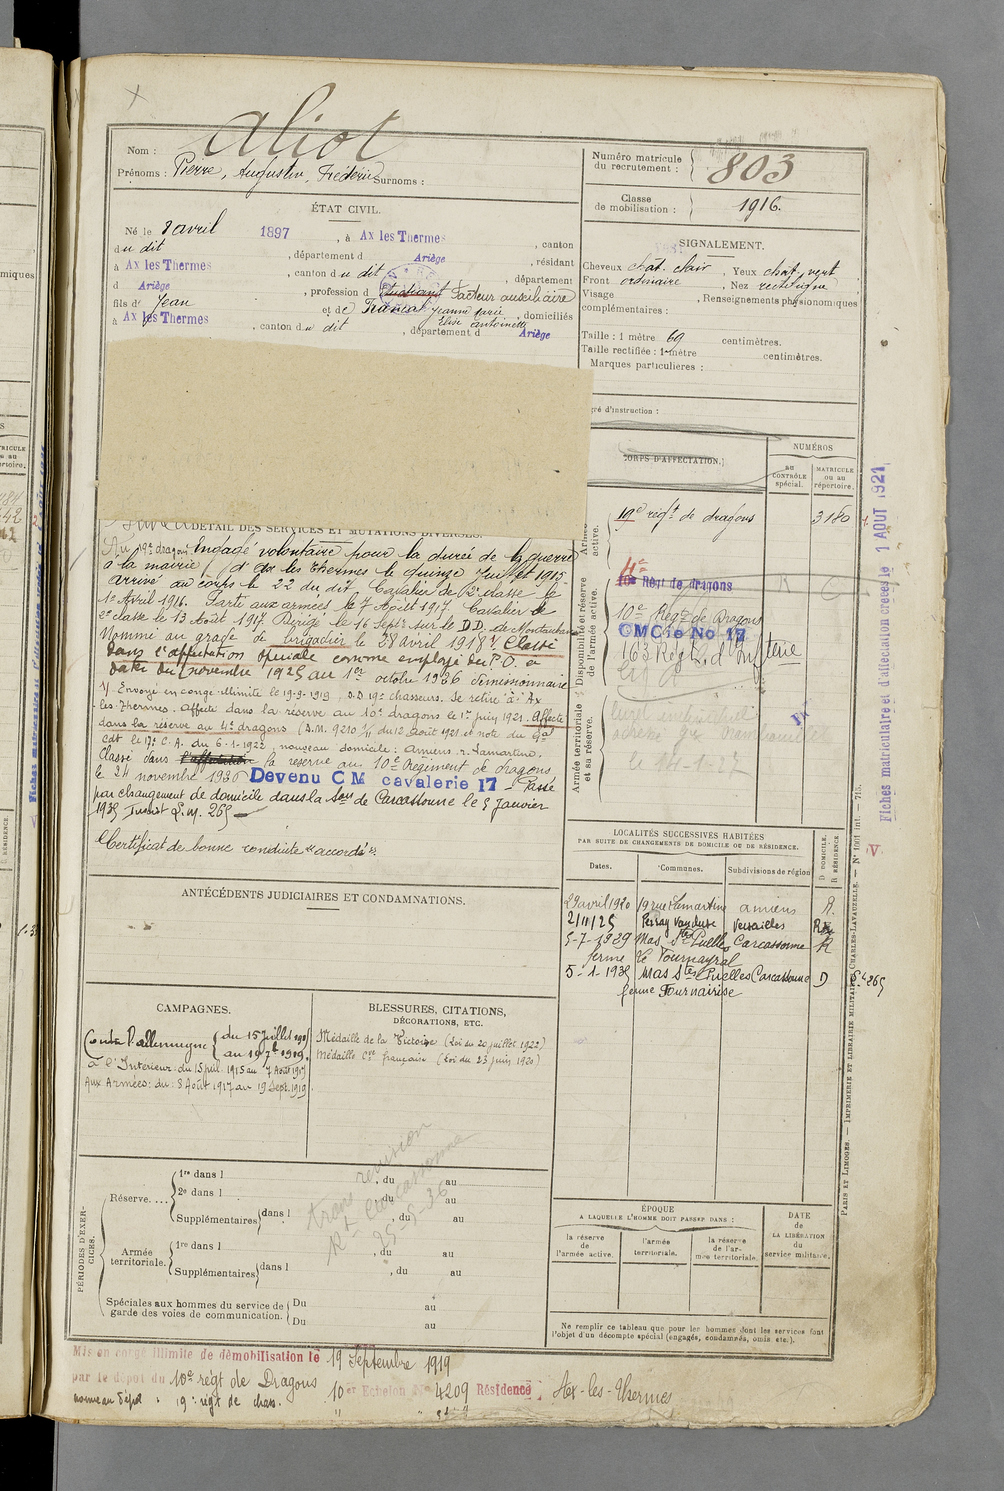 Aliot
Nom :
Prénoms : Pierre, Augustin, Frédéric Surnoms :
Numéro matricule du recrutement : 803
Classe de mobilisation : 1916.
ÉTAT CIVIL.
Né le 8 avril 1897, à Ax les Thermes, canton
du dit, département d Ariège, résidant
à Ax les Thermes, canton du dit, département
d Ariège, profession d étudiant Facteur auxiliaire
fils d' Jean et de jeanne marie Elise antoinette, domiciliés
à Ax les Thermes, canton du dit, département d Ariège
SIGNALEMENT.
Cheveux chat. clair, Yeux chat. vert
Front ordinaire, Nez rectiligne
Visage, Renseignements physionomiques
complémentaires :
Taille : 1 mètre 69 centimètres.
Taille rectifiée : 1 mètre centimètres.
Marques particulières :
gré d'instruction :
CORPS D'AFFECTATION.
NUMÉROS
au CONTRÔLE spécial.
MATRICULE ou au répertoire.
DÉTAIL DES SERVICES ET MUTATIONS DIVERSES.
Au 19e dragons Engagé volontaire pour la durée de la guerre
à la mairie d'Ax les Thermes le quinze Juillet 1915
arrivé au corps le 22 du dit Cavalier de 2e classe le
1er Avril 1916. Parti aux armées le 7 Août 1917. Cavalier de
2e classe le 13 Août 1917 le 16 Septe sur le D.D. de Montauban
Nommé au grade de brigadier le 28 avril 1918 1/. Classé
dans l'affectation spéciale comme employé des P.O. a
dater du novembre 1925 au 1er octobre 1936 démissionnaire
1/. Envoyé en congé illimité le 19-9-1919, D.D. 19e chasseurs. Se retire à Ax
-les-Thermes. Affecté dans la réserve au 10e dragons le 1er juin 1921. Affecté
dans la réserve au 4e dragons (D.M. 9210 du 12 Août 1921 et note du Gal
cdt le 17e C.A. du 6-1-1922, nouveau domicile : Amiens, r. Lamartine.
Classé dans l'affectation la réserve au 10e Régiment de dragons
le 24 novembre 1930 Devenu CM cavalerie 17 - Passé
par changement de domicile dans la Son de Carcassonne le 5 Janvier
1935 Inscrit L.m. 265
Certificat de bonne conduite "accordé".
Armée active.
19e régt de dragons 3180
Disponibilité et réserve de l'armée active.
4e
10e Régt de dragons
10e Régt de Dragons
CM Cie No 17
163 Régt d'Infterie
Armée territoriale et sa réserve.
LOCALITÉS SUCCESSIVES HABITÉES
PAR SUITE DE CHANGEMENTS DE DOMICILE OU DE RÉSIDENCE.
Dates. Communes. Subdivisions de région D. DOMICILE. R. RÉSIDENCE.
29 avril 1920 19 rue Lamartine amiens R.
2/11/25 Perray Vaucluse Versailles R
5-7-1929 Mas Stes Puelles Carcassonne R
ferme Le Tournayral
5-1-1935 Mas Stes Puelles Carcassonne D
ferme Fournairise
ANTÉCÉDENTS JUDICIAIRES ET CONDAMNATIONS.
CAMPAGNES.
Contre l'allemagne du 15 Juillet 1915 au 19 7b 1919.
à l'Intérieur : du 15 juil. 1915 au 7 Août 1917
Aux Armées : du : 8 Août 1917 au 19 Sept. 1919
BLESSURES, CITATIONS, DÉCORATIONS, ETC.
Médaille de la Victoire (Loi du 20 juillet 1922)
Médaille Cve française (Loi du 23 juin 1920)
PÉRIODES D'EXERCICES.
Réserve....
1re dans l , du au
2e dans l , du au
Supplémentaires dans l , du au
Armée territoriale.
1re dans l , du au
Supplémentaires dans l , du au
Spéciales aux hommes du service de garde des voies de communication.
Du au
Du au
trans révision
Rt Carcassonne
25-5-36
ÉPOQUE
A LAQUELLE L'HOMME DOIT PASSER DANS :
la réserve de l'armée active.
l'armée territoriale.
la réserve de l'armée territoriale.
DATE de LA LIBÉRATION du service militaire.
Ne remplir ce tableau que pour les hommes dont les services font l'objet d'un décompte spécial (engagés, condamnés, omis, etc.).
Mis en congé illimité de démobilisation le 19 Septembre 1919
par le dépôt du 10e régt de Dragons 10er Echelon No 4209 Résidence Ax-les-Thermes
nouveau dépôt : 19e régt de chas.
Fiches matriculaire et d'affectation créées le 1 AOUT 1921
PARIS ET LIMOGES. — IMPRIMERIE ET LIBRAIRIE MILITAIRES CHARLES-LAVAUZELLE. — No 1001 int. — 715.